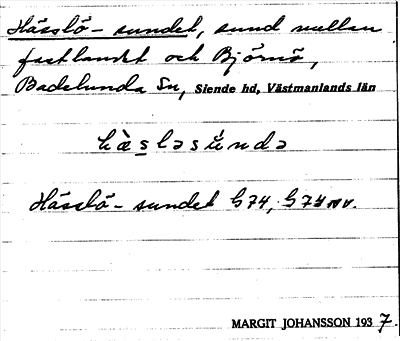 Hässlö-sundet, sund mellan
fastlandet och Björnö,
Badelunda Sn, Siende hd, Västmanlands län
hὰsləsúndə
Hässlö-sundet G74, G74 NV.
MARGIT JOHANSSON 1937.